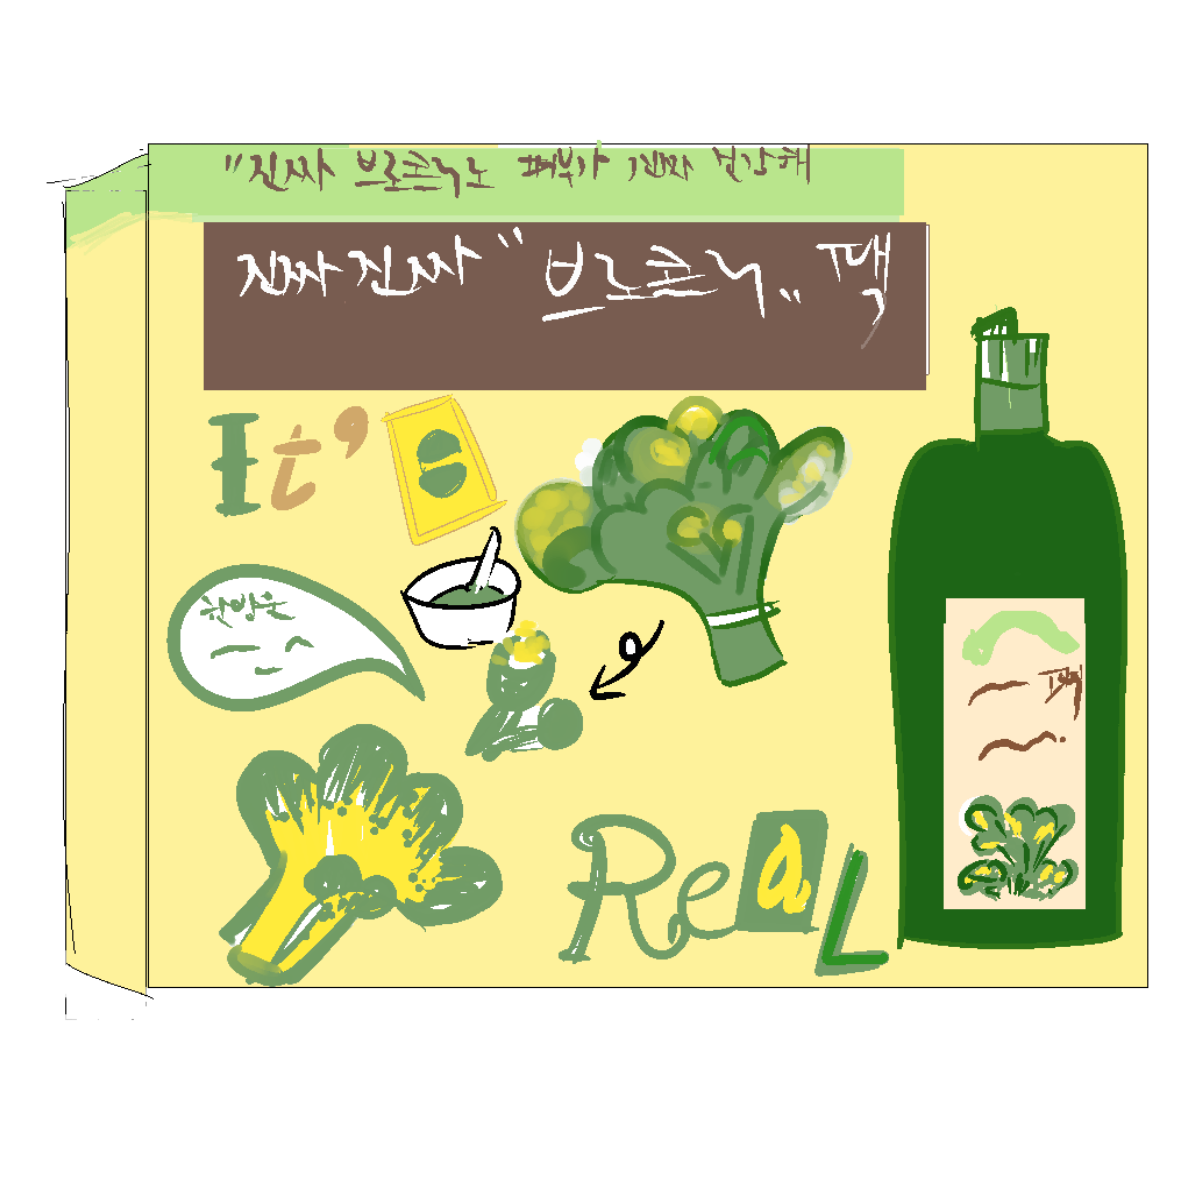 "진짜 브로콜리로 피부가 진짜 건강해
진짜진짜 "브로콜리" 팩
It's
한방울
팩
ReaL